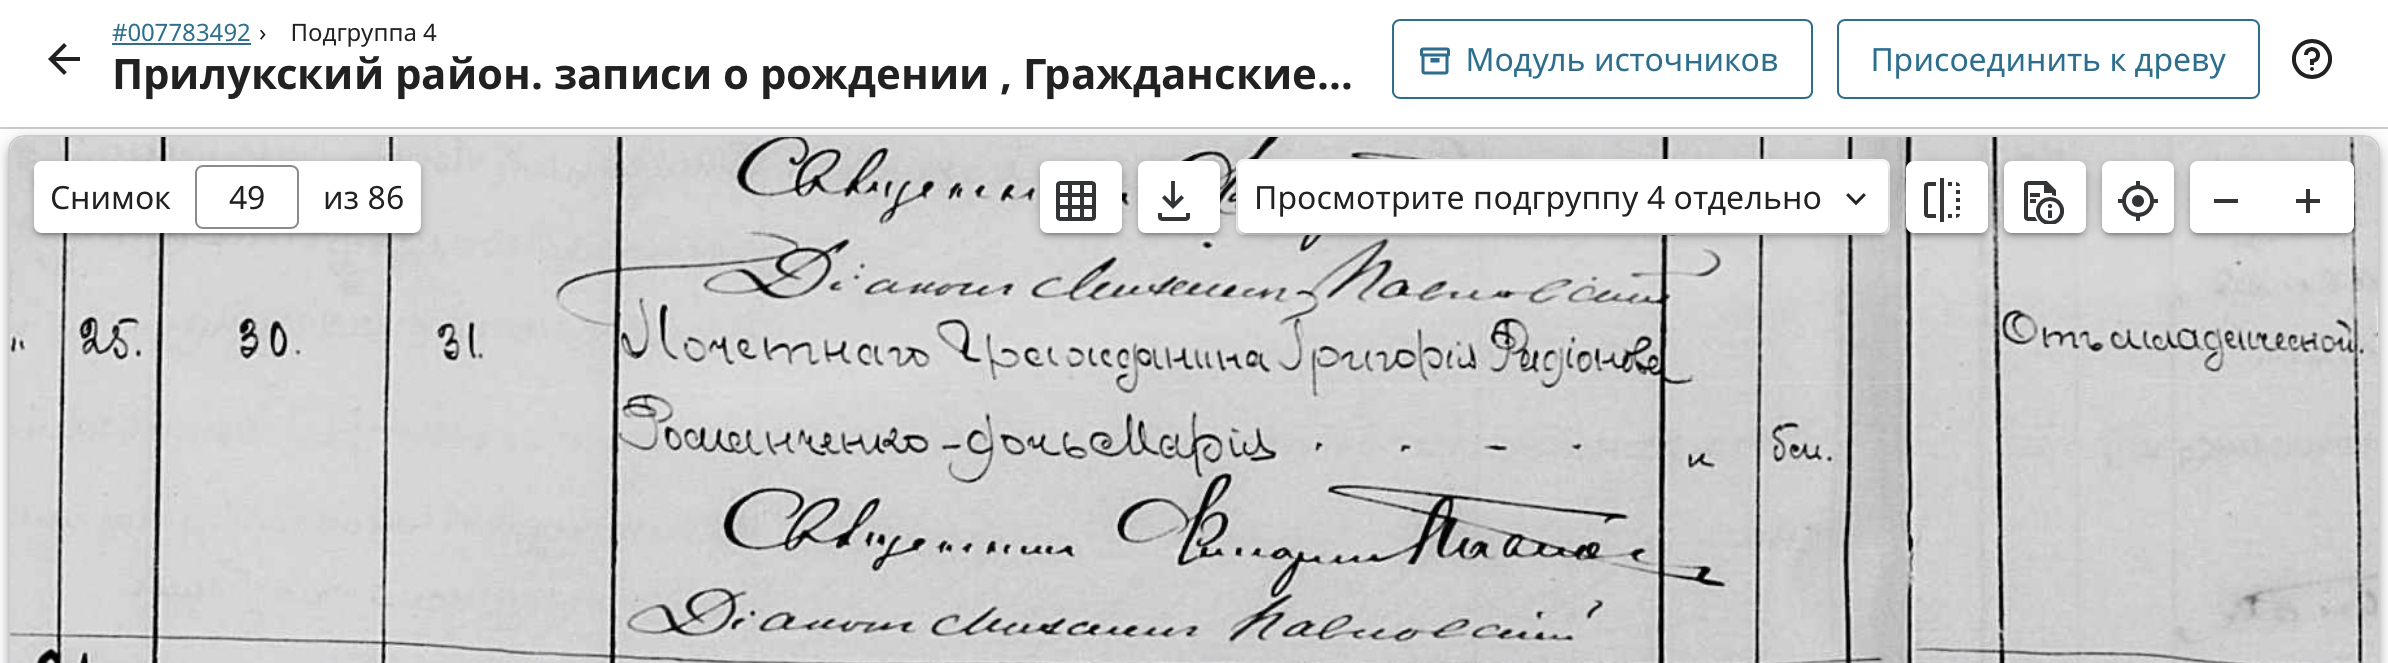 #007783492 › Подгруппа 4
Прилукский район. записи о рождении , Гражданские...
Модуль источников
Присоединить к древу
Снимок 49 из 86
Просмотрите подгруппу 4 отдельно
Священник
Діаконъ Михаилъ
" 25. 30. 31. Почетнаго Гражданина Григорія Радіонова Отъ младенческой.
Романченко - дочь Марія . . - . " 6м.
Священник
Діаконъ Михаилъ